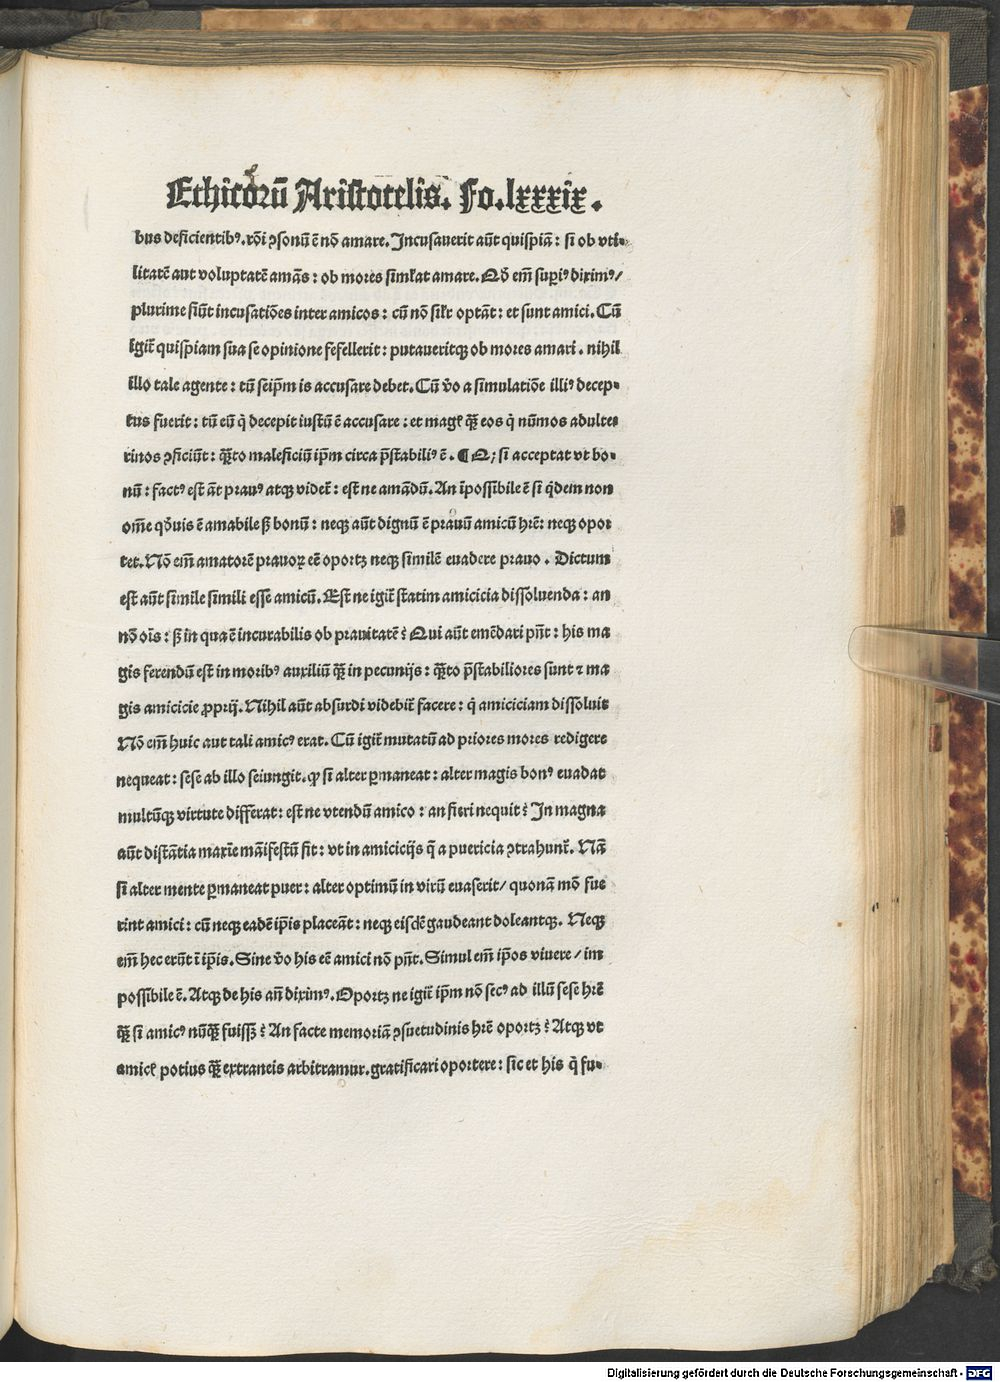 Ethicorū Aristotelis. Fo. lxxxix.
bus deficientibꝰ. rōi ꝯsonū ē nō amare. Incusauerit aūt quispiā: si ob vti-
litatē aut voluptatē amās: ob mores simĺat amare. Qď em̄ supiꝰ diximꝰ/
plurime fiūt incusatiōes inter amicos: cū nō siĺr optāt: et sunt amici. Cū
igit̄ quispiam sua se opinione fefellerit: putaueritqꝫ ob mores amari. nihil
illo tale agente: tū seip̄m is accusare debet. Cū v̄o a simulatiōe illiꝰ decep-
tus fuerit: tū eū q̄ decepit iustū ē accusare: et magꝭ qꝫ̄ eos q̄ nūmos adulte-
rinos ꝯficiūt: qꝫ̄to maleficiū ip̄m circa p̄stabiliꝰ ē. ¶ Qꝫ si acceptat vt bo-
nū: factꝰ est āt prauꝰ atqꝫ videt̄: est ne amādū. An īpossibile ē si q̄dem non
om̄e qďuis ē amabile sꝫ bonū: neqꝫ aūt dignū ē prauū amicū hr̄e: neqꝫ opor
tet. Nō em̄ amatorē prauoꝝ eē oportꝫ neqꝫ similē euadere prauo. Dictum
est aūt simile simili esse amicū. Est ne igit̄ statim amicicia dissoluenda: an
nō oīs: sꝫ in qua ē incurabilis ob prauitatē? Qui aūt emēdari pn̄t: his ma
gis ferendū est in moribꝰ auxiliū qꝫ̄ in pecunijs: qꝫ̄to p̄stabiliores sunt ⁊ ma
gis amicicie ꝓprij. Nihil aūt absurdi videbit̄ facere: q̄ amiciciam dissoluit
Nō em̄ huic aut tali amicꝰ erat. Cū igit̄ mutatū ad priores mores redigere
nequeat: sese ab illo seiungit. ꝙ si alter ꝑmaneat: alter magis bonꝰ euadat
multūqꝫ virtute differat: est ne vtendū amico: an fieri nequit? In magna
aūt distātia maxīe māifestū fit: vt in amicicijs q̄ a puericia ꝯtrahunt̄. Nā
si alter mente ꝑmaneat puer: alter optimū in virū euaserit/ quonā mō fue
rint amici: cū neqꝫ eadē ip̄is placeāt: neqꝫ eisdē gaudeant doleantqꝫ. Neqꝫ
em̄ hec erūt ī ip̄is. Sine v̄o his eē amici nō pn̄t. Simul em̄ ip̄os viuere/ im
possibile ē. Atqꝫ de his an̄ diximꝰ. Oportꝫ ne igit̄ ip̄m nō secꝰ ad illū sese hr̄e
qꝫ̄ si amicꝰ nūqꝫ̄ fuissꝫ? An facte memoriā ꝯsuetudinis hr̄e oportꝫ? Atqꝫ vt
amicꝭ potius qꝫ̄ extraneis arbitramur. gratificari oportere: sic et his q̄ fu-
Digitalisierung gefördert durch die Deutsche Forschungsgemeinschaft - DFG